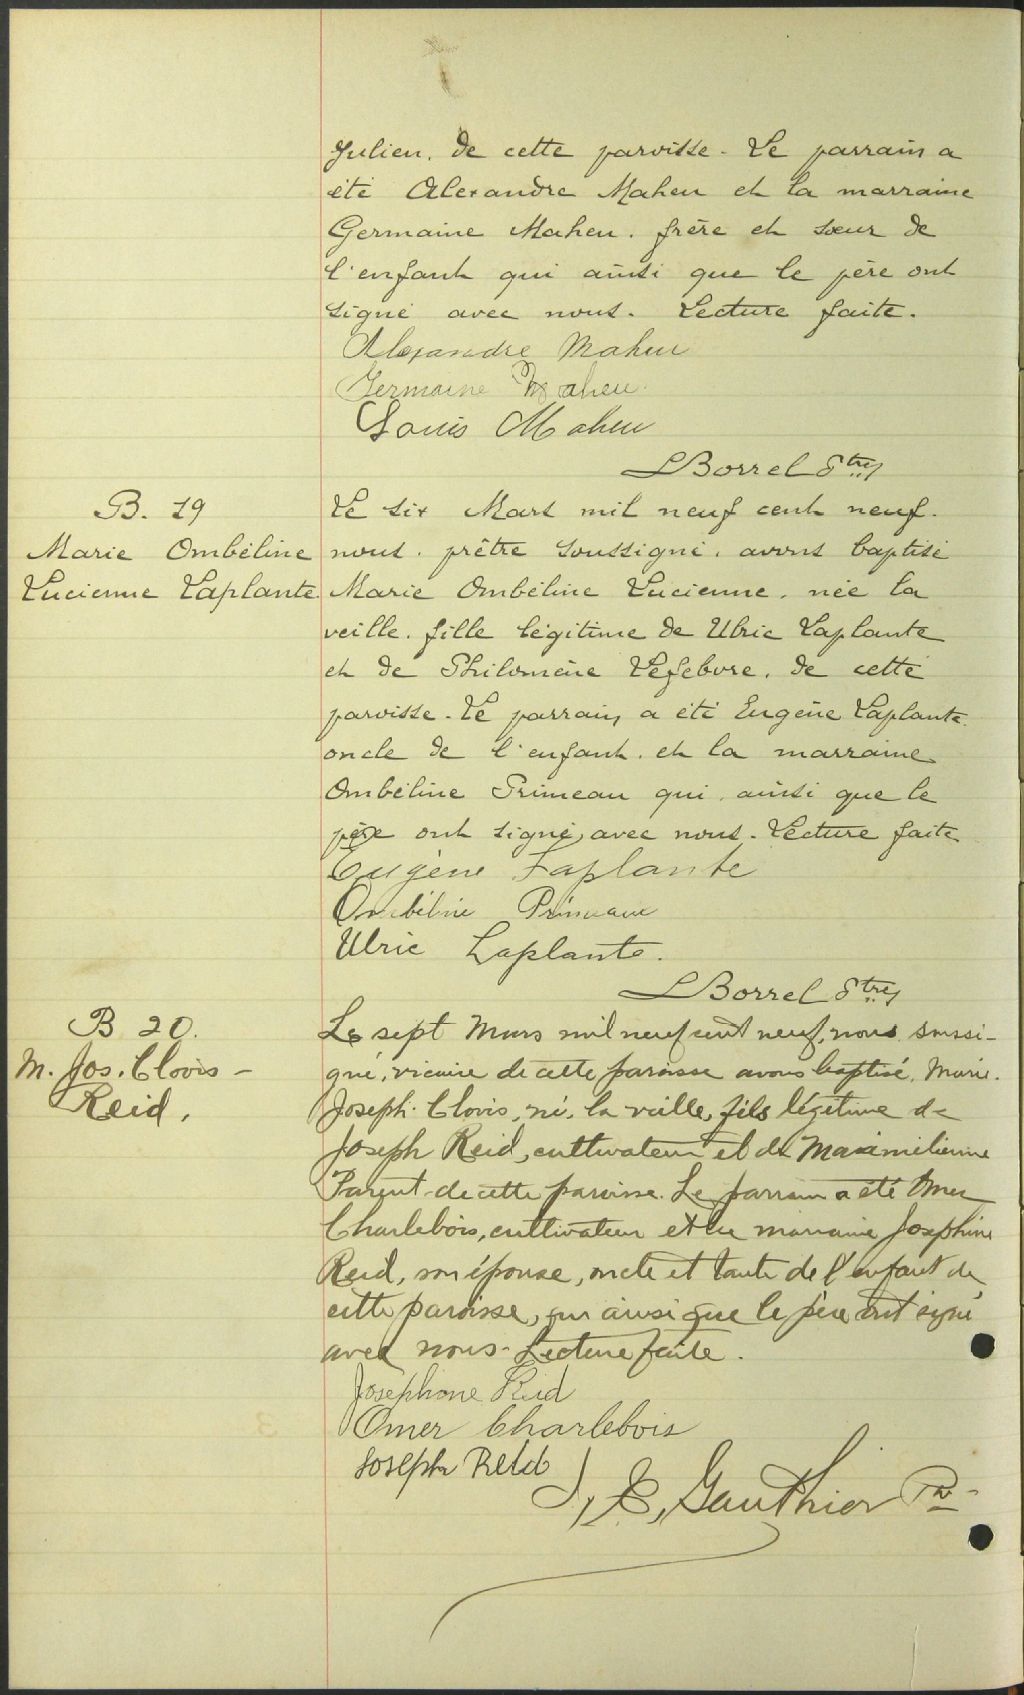 Julien. de cette paroisse - Le parrain a
été Alexandre Maheu et la marraine
Germaine Maheu. frère et sœur de
l'enfant qui ainsi que le père ont
signé avec nous. Lecture faite.
Alexandre Maheu
Germaine Maheu
Louis Maheu
L Borrel Ptre
B. 19
Marie Ombéline
Lucienne Laplante
Le six Mars mil neuf cent neuf.
nous. prêtre soussigné. avons baptisé
Marie Ombéline Lucienne. née la
veille. fille légitime de Ulric Laplante
et de Philomène Lefebvre. de cette
paroisse - Le parrain a été Eugène Laplante
oncle de l'enfant. et la marraine
Ombéline Primeau qui. ainsi que le
père ont signé avec nous. Lecture faite
Eugène Laplante
Ombéline Primeau
Ulric Laplante.
L Borrel Ptre
B 20.
M. Jos. Clovis -
Reid.
Le sept Mars mil neuf cent neuf, nous soussi-
gné, vicaire de cette paroisse avons baptisé, Marie.
Joseph. Clovis, né, la veille, fils légitime de
Joseph Reid, cultivateur et de Maximilienne
Parent de cette paroisse. Le parrain a été Omer
Charlebois, cultivateur et la marraine Josephine
Reid, son épouse, oncle et tante de l'enfant de
cette paroisse, qui ainsi que le père ont signé
avec nous - Lecture faite.
Josephine Reid
Omer Charlebois
Joseph Reid
J. E. Gauthier Ptr